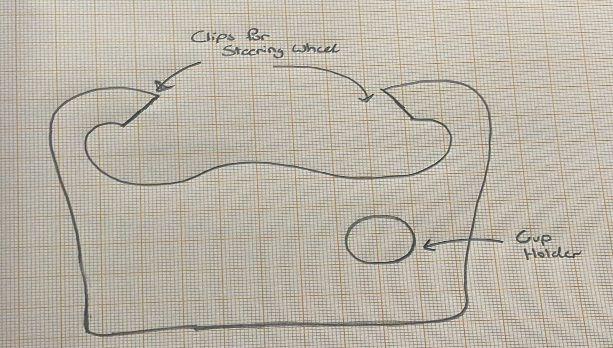 Clips for
Steering Wheel
Cup
Holder